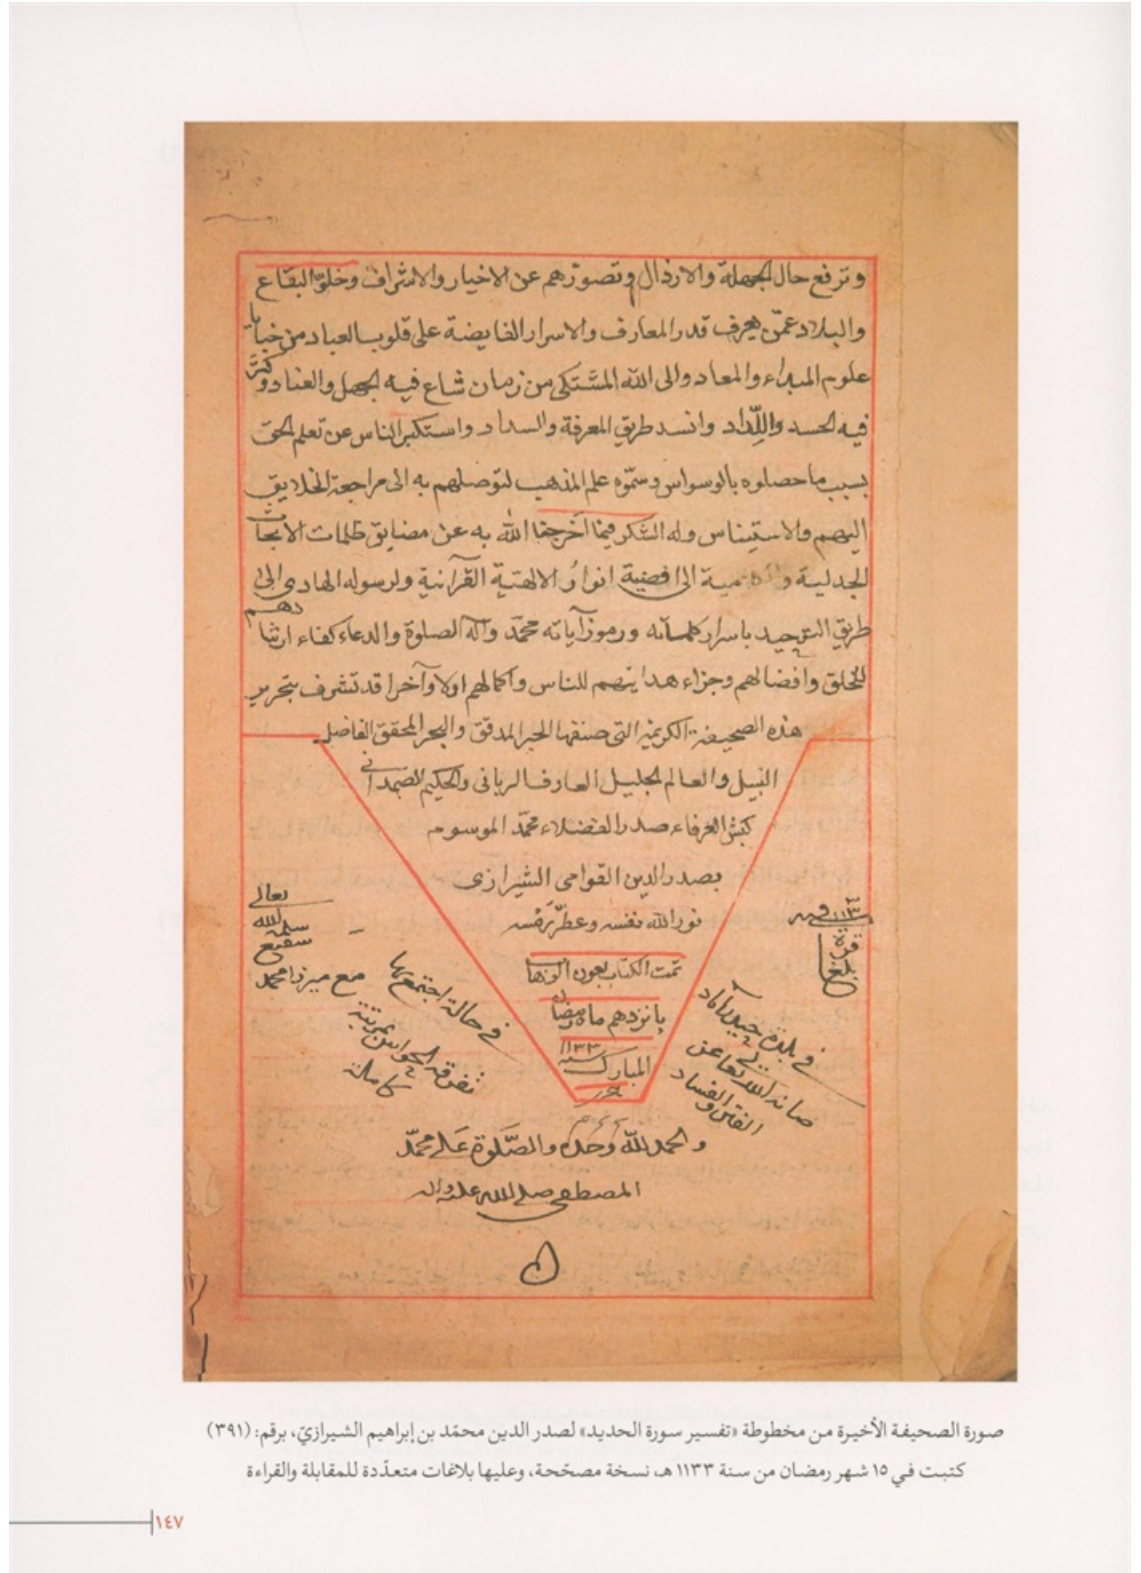 وترفع حال الجهلة والارذال وتصوزهم عن الاخيار والاشراف وخلق البقاع
والبلاد عمّن يعرف قدر المعارف والاسرار الفايضة على قلوب العباد من خبايا
علوم المبداء والمعاد والى الله المشتكى من زمان شاع فيه الجهل والعناد وكثر
فيه الحسد واللّداد وانسد طريق المعرفة والسداد واستكبر الناس عن تعلم الحق
بسبب ما حصلوه بالوسواس وسمّوه علم المذهب لتوصلهم به الى مراجعة الخلايق
اليهم والاستيناس وله الشكر فيما اخرجنا الله به عن مضايق ظلمات الابحاث
الجدلية الى افضية انوار الالهية القرآنية ولرسوله الهادى الى
طريق التوحيد باسرار كلماته ورموز آياته محمّد وآله الصلوة والدعاء كفاء ارشادهم
للخلق وافضالهم وجزاء هدايتهم للناس واكمالهم اولا وآخرا قد تشرف بتحرير
هذه الصحيفة الكريمة التى صنفها الحبر المدقق والبحر المحقق الفاضل
النبيل والعالم الجليل العارف الربانى والحكيم الصمدانى
كبش العرفاء صدر الفضلاء محمّد الموسوم
بصدر الدين القوامى الشيرازى
نور الله نفسه وعطّر رمسه
تمت الكتاب بعون الوهاب
پانزدهم ماه رمضان
المبارك سنة ١١٣٣
بلغ
قرة
في بلدة حيدرآباد
صانه الله تعالى عن
الفتن والفساد
في حالة اجتمع بها
تفرقة الحواس بمرتبة
كاملة
مع ميرزا محمد
سفيع
سلمه الله
تعالى
والحمد للّه وحده والصَّلوة على محمّد
المصطفى صلى الله عليه واله
صورة الصحيفة الأخيرة من مخطوطة «تفسير سورة الحديد» لصدر الدين محمّد بن إبراهيم الشيرازيّ، برقم: (٣٩١)
كتبت في ١٥ شهر رمضان من سنة ١١٣٣ هـ، نسخة مصحّحة، وعليها بلاغات متعدّدة للمقابلة والقراءة
١٤٧